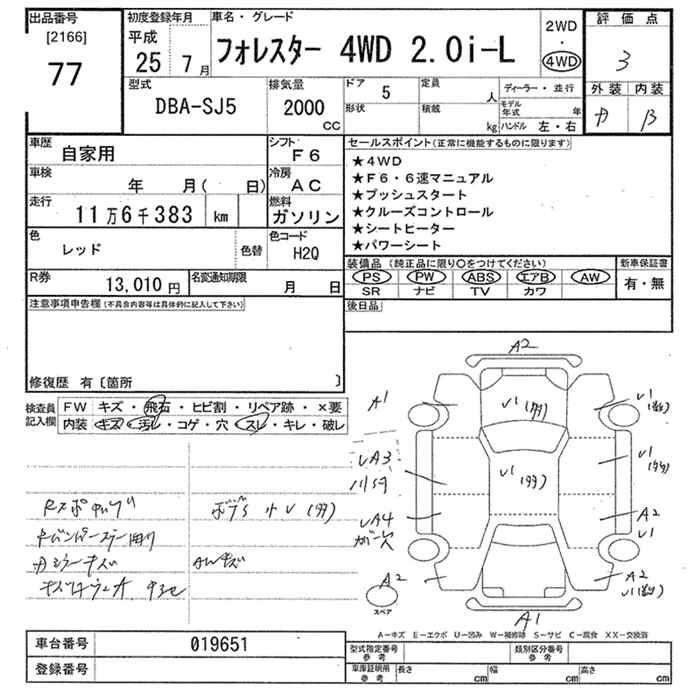 出品番号
[2166]
77
初度登録年月
平成
25 7月
車名・グレード
フォレスター 4WD 2.0i-L
2WD
・
4WD
評価点
3
外装 内装
B
型式
DBA-SJ5
排気量
2000
cc
ドア 5
形状
定員 人
積載 kg
ディーラー・並行
モデル年式 年
ハンドル 左・右
車歴
自家用
シフト
F6
車検
年 月( 日)
冷房
AC
走行
11万6千383 km
燃料
ガソリン
色
レッド
色替
色コード
H2Q
R券
13,010円
名変通知期限
月 日
セールスポイント(正常に機能するものに限ります)
★4WD
★F6・6速マニュアル
★プッシュスタート
★クルーズコントロール
★シートヒーター
★パワーシート
装備品(純正品に限り○をつけてください)
PS PW ABS エアB AW
SR ナビ TV カワ
新車保証書
有・無
後日品
注意事項申告欄(不具合内容等は具体的に記入して下さい)
修復歴 有〔箇所 〕
検査員記入欄
FW キズ・飛石・ヒビ割・リペア跡・×要
内装 キズ・汚レ・コゲ・穴・スレ・キレ・破レ
AWキズ
A2
A1
U1
U1
UA3
U1
U1
UA4
A2
U1
A2
A2
U1
A1
スペア
A-キズ E-エクボ U-凹み W-補修跡 S-サビ C-腐食 XX-交換済
車台番号
019651
登録番号
型式指定番号
参考
類別区分番号
参考
車庫証明用
参考
長さ cm
幅 cm
高さ cm